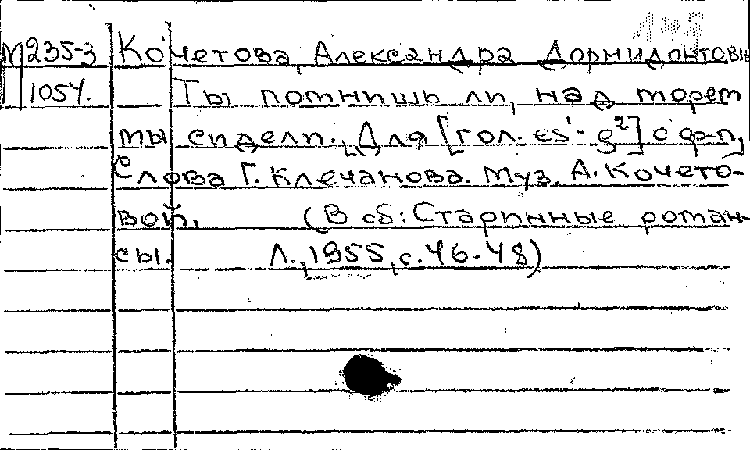 М235-3 Кочетова, Александра Дормидонтовн
1054. Ты помнишь ли, над морем
мы сидели. Для [гол. es¹- g²] с ф-п,
Слова Г. Клечанова. Муз. А. Кочето-
вой. (В сб: Старинные роман-
сы. Л., 1955, с. 46-48)